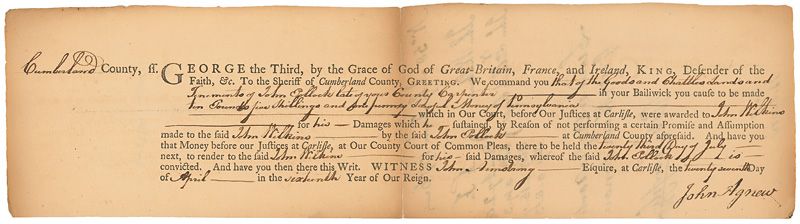 Cumberland County, ss. GEORGE the Third, by the Grace of God of Great-Britain, France, and Ireland, KING, Defender of the
Faith, &c. To the Sheriff of Cumberland County, GREETING. We command you that of the Goods and Chattles Lands and
Tenements of John Pollock late of your County Carpinter in your Bailiwick you cause to be made
ten Pounds five Shillings and Money of Pennsylvania
which in Our Court, before Our Justices at Carlisle, were awarded to John Wilkins
for his Damages which he sustained, by Reason of not performing a certain Promise and Assumption
made to the said John Wilkins by the said John Pollock at Cumberland County aforesaid. And have you
that Money before our Justices at Carlisle, at Our County Court of Common Pleas, there to be held the twenty third Day of July
next, to render to the said John Wilkins for his said Damages, whereof the said John Pollock is
convicted. And have you then there this Writ. WITNESS John Armstrong Esquire, at Carlisle, the twenty seventh Day
of April in the sixteenth Year of Our Reign.
John Agnew